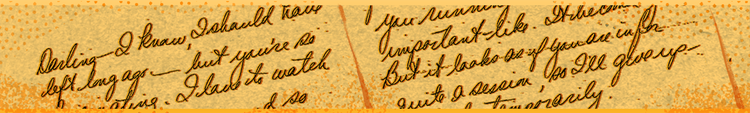 Darling — I know, I should have
left long ago — but you're so
. I love to watch
d so
you running
important-like. It
But it looks as if you are in for
quite a session, so I'll give up —
temporarily.